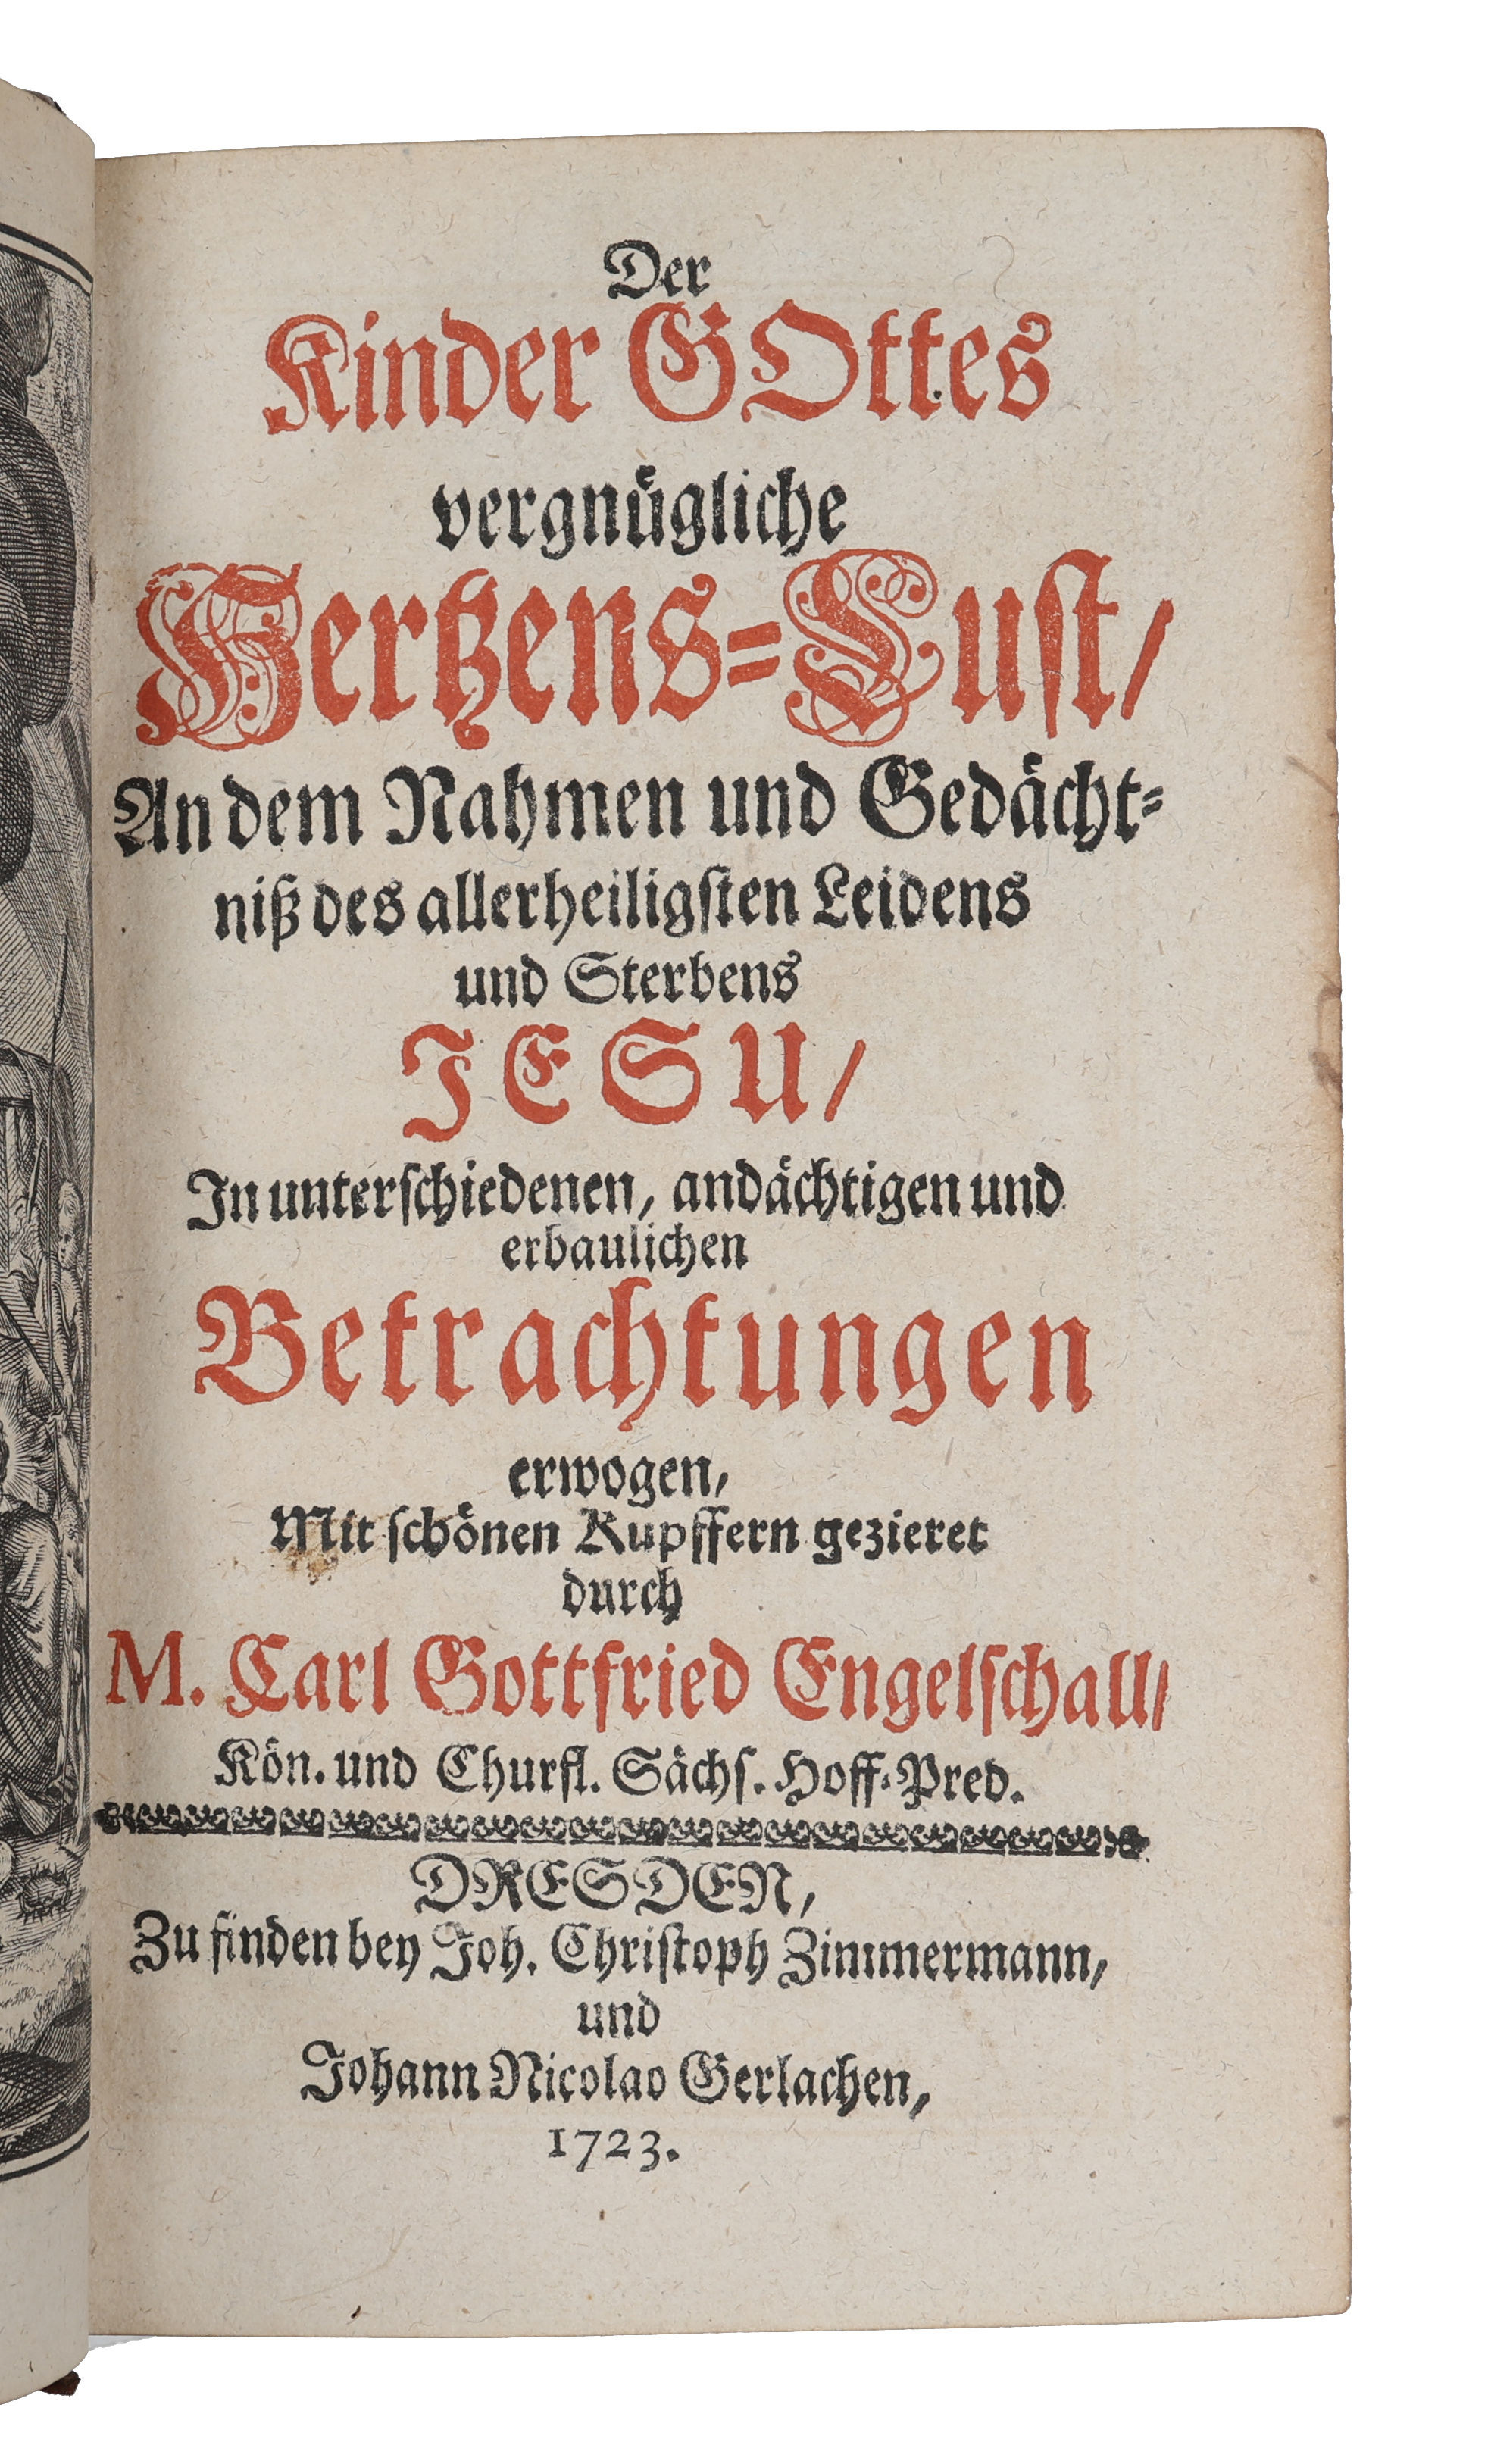 Der
Kinder GOttes
vergnügliche
Hertzens=Lust/
An dem Nahmen und Gedächt=
niß des allerheiligsten Leidens
und Sterbens
JESU/
In unterschiedenen, andächtigen und
erbaulichen
Betrachtungen
erwogen,
Mit schönen Kupffern gezieret
durch
M. Carl Gottfried Engelschall/
Kön. und Churfl. Sächs. Hoff=Pred.
DRESDEN,
Zu finden bey Joh. Christoph Zimmermann,
und
Johann Nicolao Gerlachen,
1723.